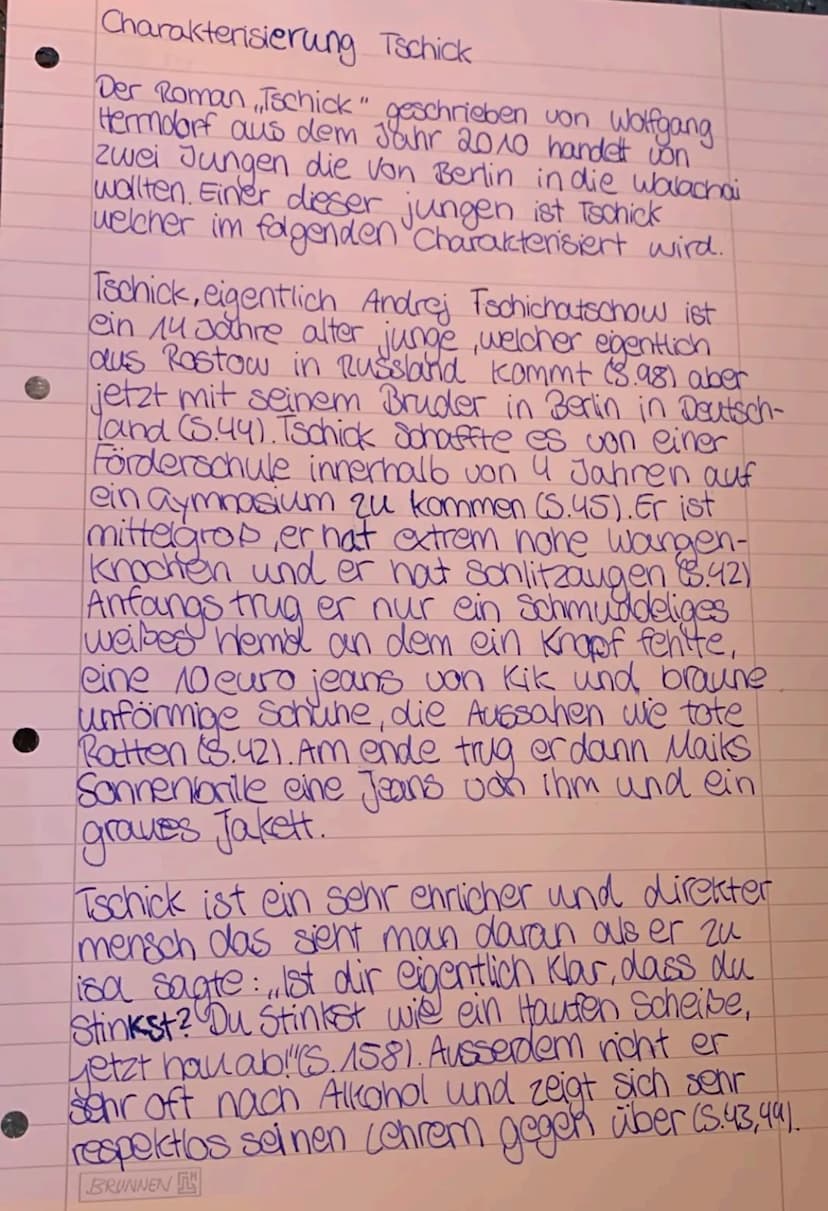 Charakterisierung Tschick
Der Roman „Tschick" geschrieben von Wolfgang
Herrndorf aus dem Jahr 2010 handelt von
zwei Jungen die von Berlin in die Walachai
wollten. Einer dieser jungen ist Tschick
welcher im folgenden Charakterisiert wird.
Tschick, eigentlich Andrej Tschichatschow ist
ein 14 Jahre alter junge, welcher eigentlich
aus Rostow in Russland kommt (S.98) aber
jetzt mit seinem Bruder in Berlin in Deutsch-
land (S.44). Tschick schaffte es von einer
Förderschule innerhalb von 4 Jahren auf
ein Gymnasium zu kommen (S.45). Er ist
mittelgroß, er hat extrem hohe wangen-
knochen und er hat Schlitzaugen (S.42)
Anfangs trug er nur ein schmuddeliges
weißes Hemd an dem ein Knopf fehlte,
eine 10 euro jeans von Kik und braune
unförmige Schuhe, die Aussahen wie tote
Ratten (S.42). Am ende trug er dann Maiks
Sonnenbrille eine Jeans von ihm und ein
graues Jakett.
Tschick ist ein sehr ehrlicher und direkter
mensch das sieht man daran als er zu
isa sagte: „Ist dir eigentlich klar, dass du
Stinkst? Du Stinkst wie ein Haufen Scheiße,
jetzt hau ab!"(S.158). Ausserdem richt er
sehr oft nach Alkohol und zeigt sich sehr
respektlos seinen Lehrern gegen über (S.43,44).
BRUNNEN